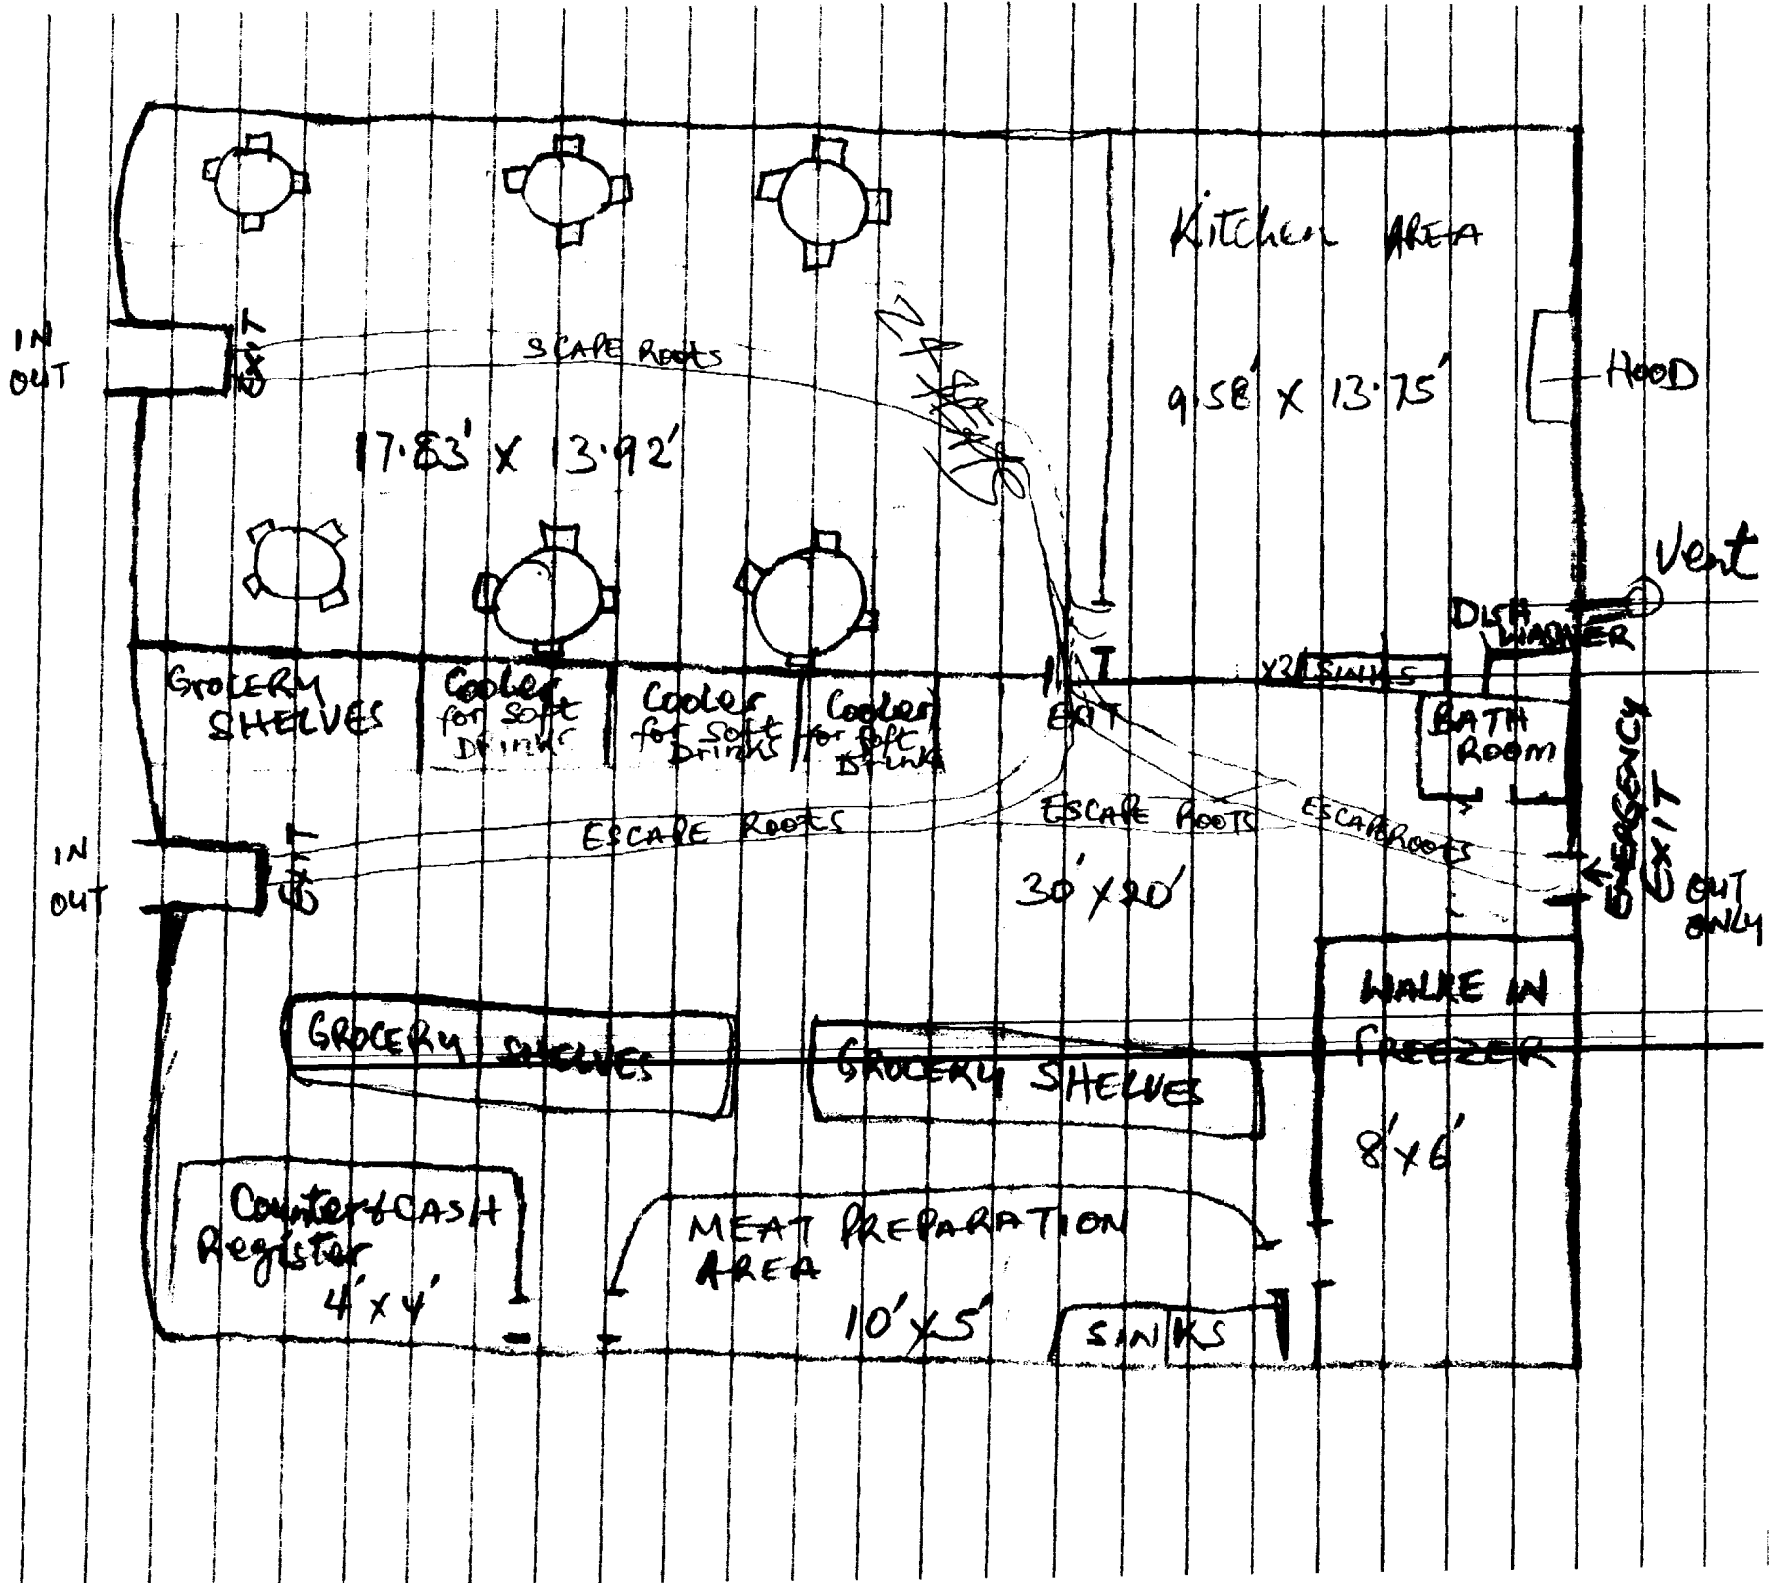 Kitchen AREA
IN
OUT
EXIT
SCAPE ROOTS
HOOD
9.58' X 13.75'
17.83' X 13.92'
Vent
DISH
WASHER
X3 SINKS
GROCERY
SHELVES
Cooler
for Soft
Drinks
Cooler
for Soft
Drinks
Cooler
for Soft
Drinks
EXIT
BATH
ROOM
EMERGENCY
EXIT
OUT
ONLY
IN
OUT
EXIT
ESCAPE ROOTS
ESCAPE ROOTS
ESCAPE ROOTS
30' X 20'
WALKE IN
FREEZER
8' X 6'
GROCERY SHELVES
GROCERY SHELVES
Counter & CASH
Register
4' X 4'
MEAT PREPARATION
AREA
10' X 5'
SINKS